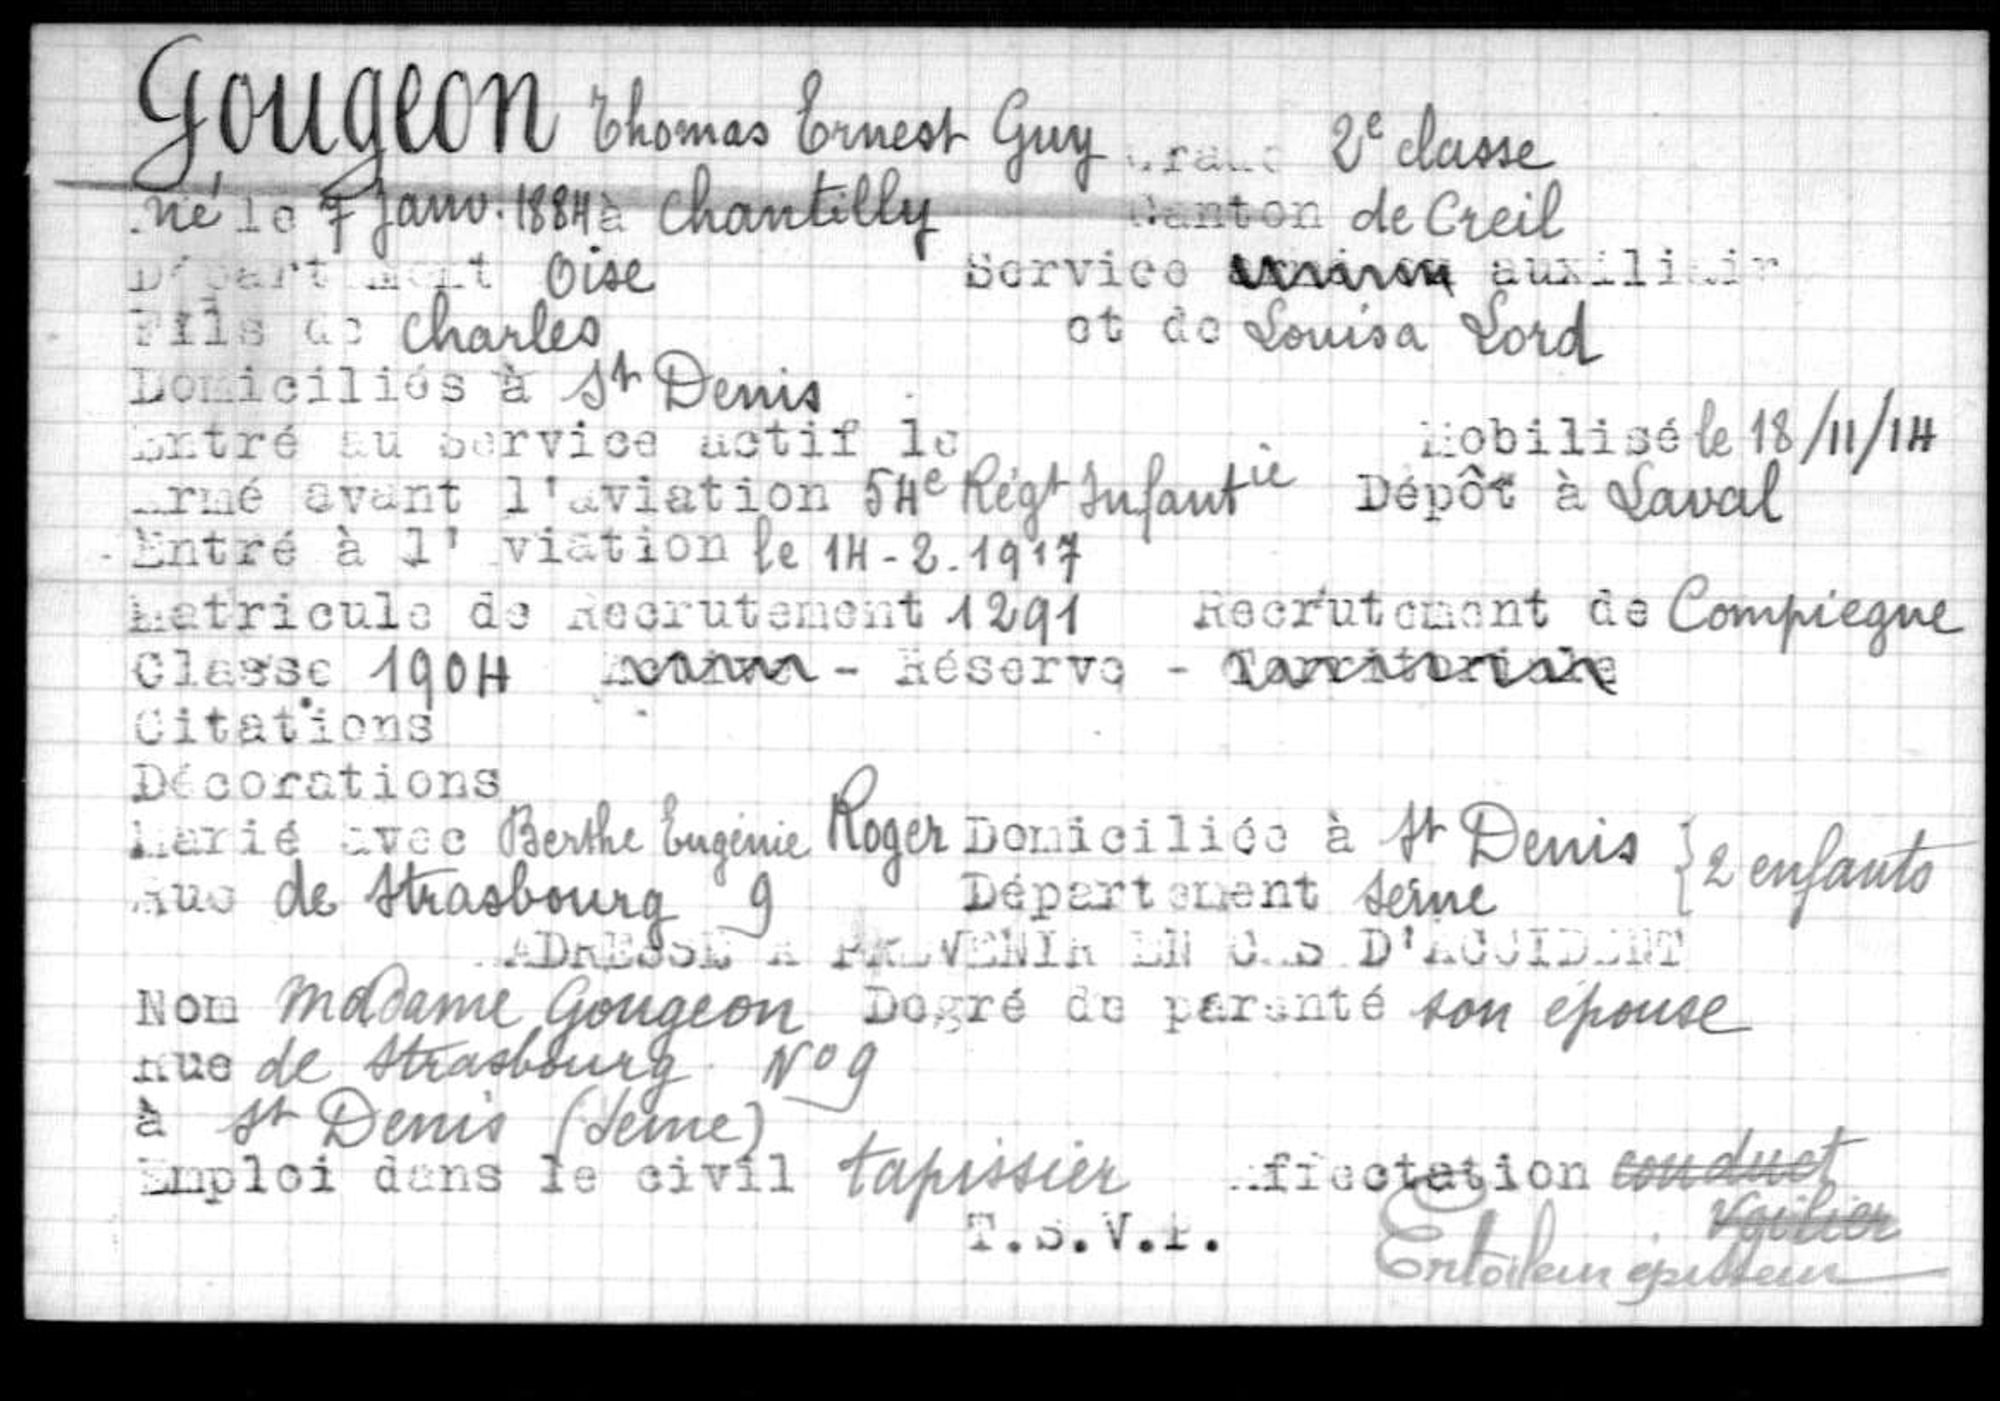 Gougeon Thomas Ernest Guy Grade 2e classe
né le 7 Janv. 1884 à Chantilly Canton de Creil
Département Oise Service auxiliair
Fils de Charles et de Louisa Lord
Domiciliés à St Denis
Entré au Service actif le Mobilisé le 18/11/14
Armé avant l'aviation 54e Régt Infantie Dépôt à Laval
Entré à l'aviation le 14-2-1917
Matricule de Recrutement 1291 Recrutement de Compiegne
Classe 1904 - Réserve - Territoriale
Citations
Décorations
Marié avec Berthe Eugénie Roger Domiciliée à St Denis } 2 enfants
Rue de Strasbourg 9 Département Seine
ADRESSE A PREVENIR EN CAS D'ACCIDENT
Nom Madame Gougeon Degré de parenté son épouse
Rue de Strasbourg N° 9
à St Denis (Seine)
Emploi dans le civil tapissier Affectation conduct
voilier
T.S.V.P.
Entoileur épisseur